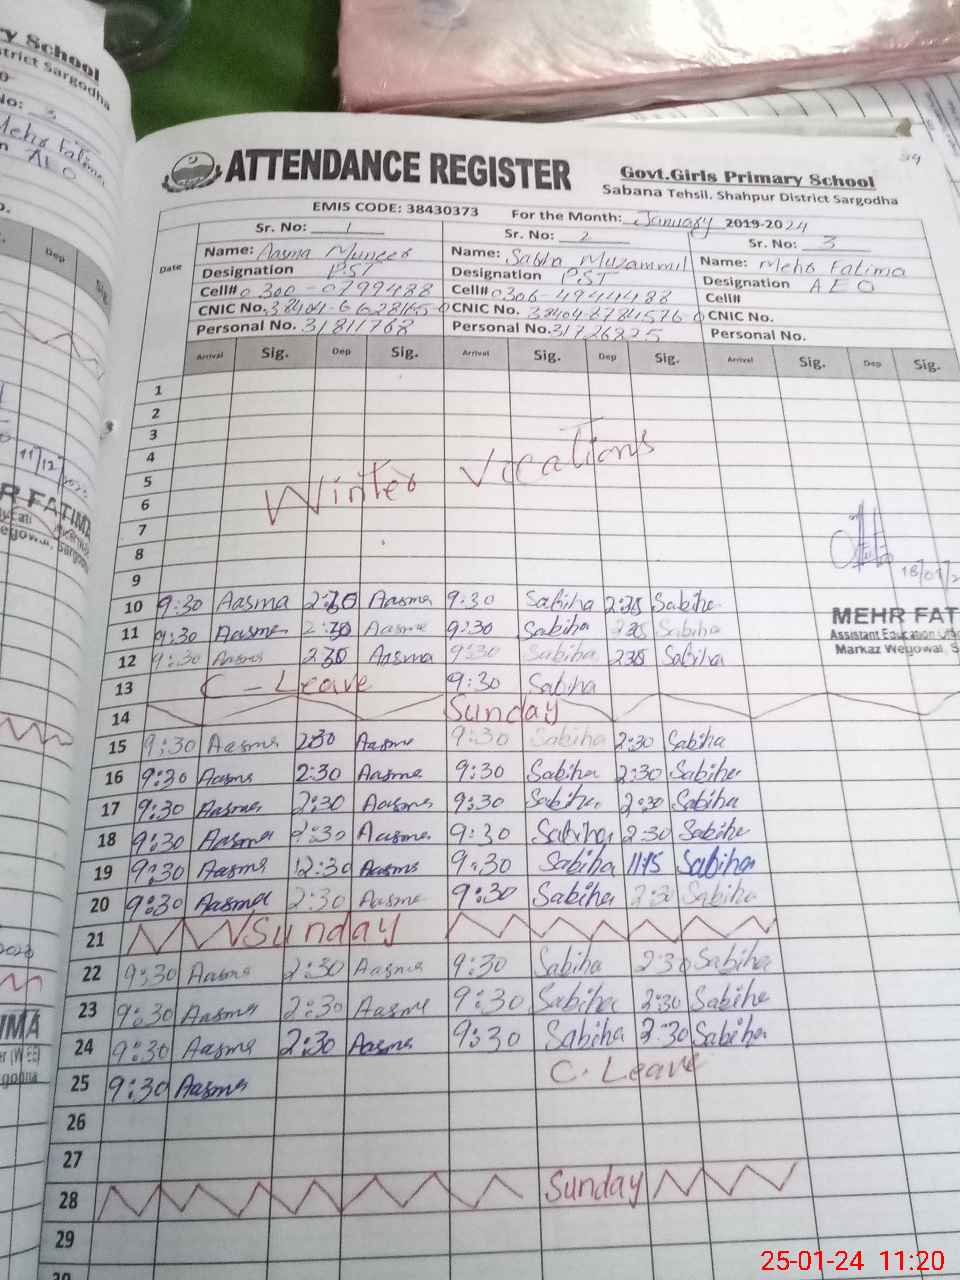 ry School
strict Sargodha
No: 3
Mehr Fatima
AEO
Dep
Sig.
11/12/
R FATIMA
2023
IMA
34
ATTENDANCE REGISTER
Govt.Girls Primary School
Sabana Tehsil. Shahpur District Sargodha
EMIS CODE: 38430373 For the Month: January 2019-2024
Sr. No: 1 Sr. No: 2 Sr. No: 3
Date
Name: Aasma Muneer Name: Sabha Muzammil Name: Mehr Fatima
Designation PST Designation PST Designation AEO
Cell# 0300-0799488 Cell# 0306-4944488 Cell#
CNIC No. CNIC No. CNIC No.
Personal No. 31811768 Personal No. 31726825 Personal No.
Arrival Sig. Dep Sig. Arrival Sig. Dep Sig. Arrival Sig. Dep Sig.
1
2
3
4
5
Winter Vocations
6
7
8
9
10 9:30 Aasma 2:30 Aasma 9:30 Sabiha 2:35 Sabiha
11 9:30 Aasma 2:30 Aasma 9:30 Sabiha 235 Sabiha
12 9:30 Aasma 230 Aasma 9:30 Sabiha 235 Sabiha
13 C - Leave 9:30 Sabiha
14 Sunday
15 9:30 Aasma 2:30 Aasma 9:30 Sabiha 2:30 Sabiha
16 9:30 Aasma 2:30 Aasma 9:30 Sabiha 2:30 Sabiha
17 9:30 Aasma 2:30 Aasma 9:30 Sabiha 2:30 Sabiha
18 9:30 Aasma 2:30 Aasma 9:30 Sabiha 2:30 Sabiha
19 9:30 Aasma 12:30 Aasma 9:30 Sabiha 1115 Sabiha
20 9:30 Aasma 2:30 Aasma 9:30 Sabiha 2:30 Sabiha
21 Sunday
22 9:30 Aasma 2:30 Aasma 9:30 Sabiha 2:30 Sabiha
23 9:30 Aasma 2:30 Aasma 9:30 Sabiha 2:30 Sabiha
24 9:30 Aasma 2:30 Aasma 9:30 Sabiha 2:30 Sabiha
25 9:30 Aasma C. Leave
26
27
28 Sunday
29
30
18/01/2
MEHR FAT
Assistant Education Offi
Markaz Wegowal, S
25-01-24 11:20